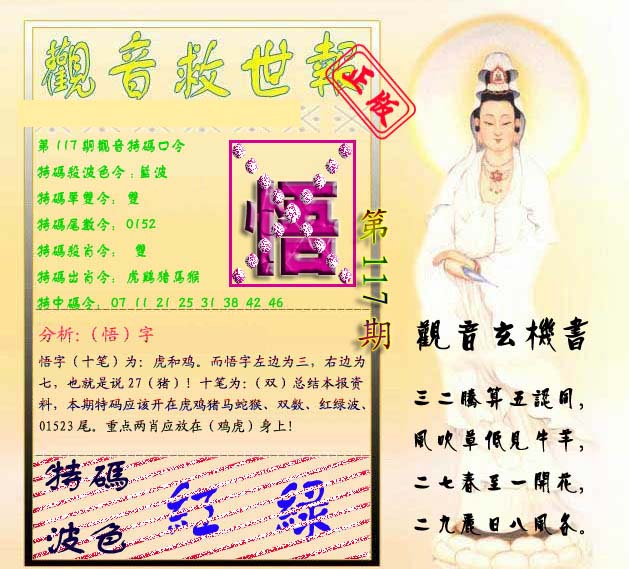 觀音救世報
正版
第117期觀音特碼口令
特碼殺波色令:藍波
特碼單雙令: 雙
特碼尾數令: 0152
特碼殺肖令: 雙
特碼出肖令: 虎鷄猪馬猴
特中碼令: 07 11 21 25 31 38 42 46
悟
第117期
分析:(悟)字
悟字(十笔)为:虎和鸡。而悟字左边为三,右边为
七,也就是说27(猪)!十笔为:(双)总结本报资
料,本期特码应该开在虎鸡猪马蛇猴、双数、红绿波、
01523尾。重点两肖应放在(鸡虎)身上!
特碼
波色
紅 綠
觀音玄機書
三二騰算五認同,
風吹草低見牛羊,
二七春至一開花,
二九晨日八風各。